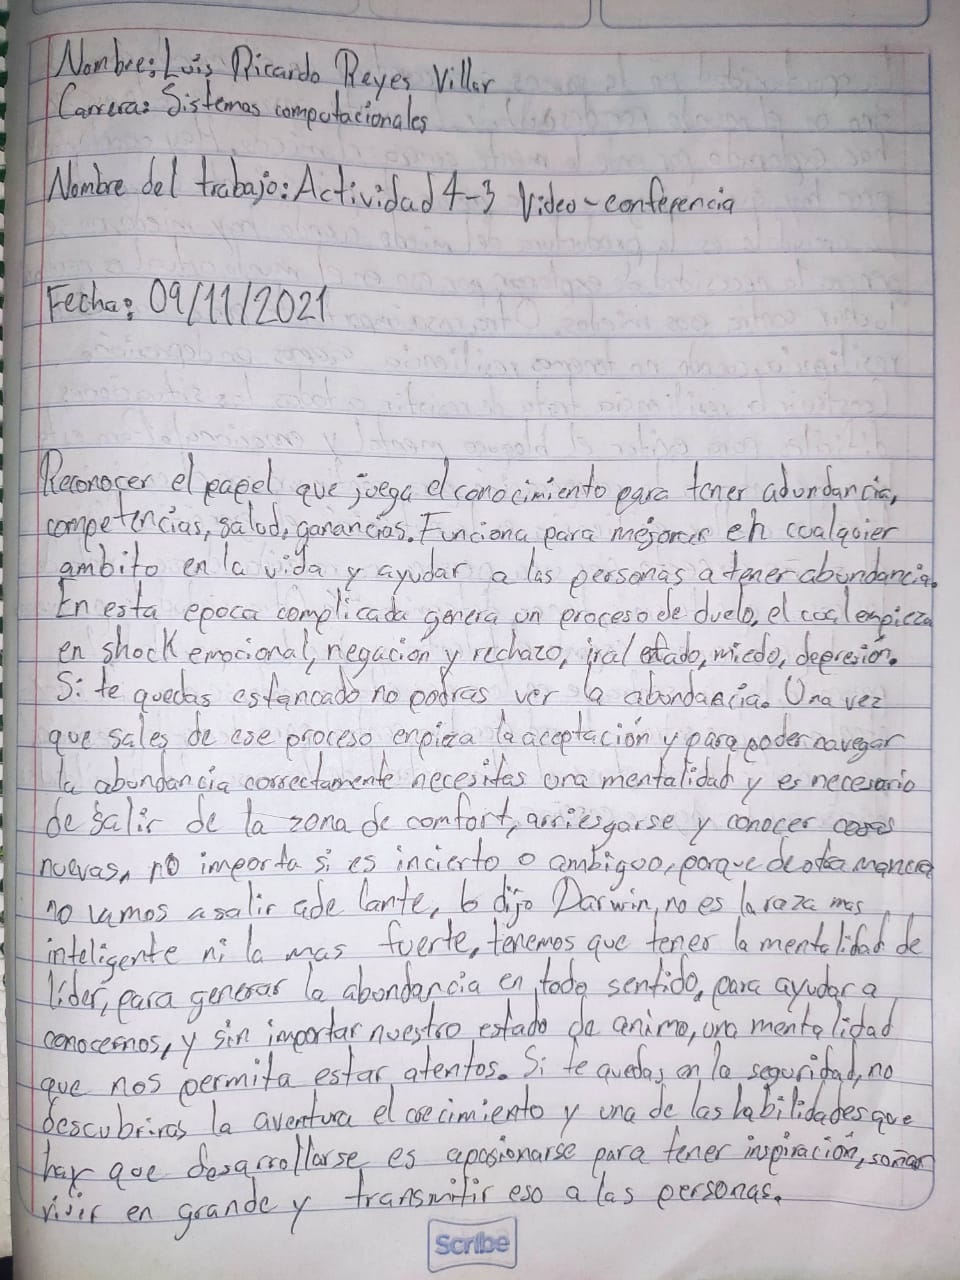 Nombre: Luis Ricardo Reyes Villar
Carrera: Sistemas computacionales
Nombre del trabajo: Actividad 4-3 Video-conferencia
Fecha: 09/11/2021
Reconocer el papel que juega el conocimiento para tener adundancia,
competencias, salud, ganancias. Funciona para mejorar en cualquier
ambito en la vida y ayudar a las personas a tener abundancia.
En esta epoca complicada genera un proceso de duelo, el cual empieza
en shock emocional, negación y rechazo, ira/ enfado, miedo, depresión.
Si te quedas estancado no podras ver la abundancia. Una vez
que sales de ese proceso empieza la aceptación y para poder navegar
la abundancia correctamente necesitas una mentalidad y es necesario
de salir de la zona de comfort, arriesgarse y conocer cosas
nuevas, no importa si es incierto o ambiguo, porque de otra manera
no vamos a salir adelante, lo dijo Darwin, no es la raza mas
inteligente ni la mas fuerte, tenemos que tener la mentalidad de
líder, para generar la abundancia en todo sentido, para ayudar a
conocernos, y sin importar nuestro estado de animo, una mentalidad
que nos permita estar atentos. Si te quedas en la seguridad, no
descubriras la aventura el crecimiento y una de las habilidades que
hay que desarrollarse es apasionarse para tener inspiración, soñar
vivir en grande y transmitir eso a las personas.
Scribe